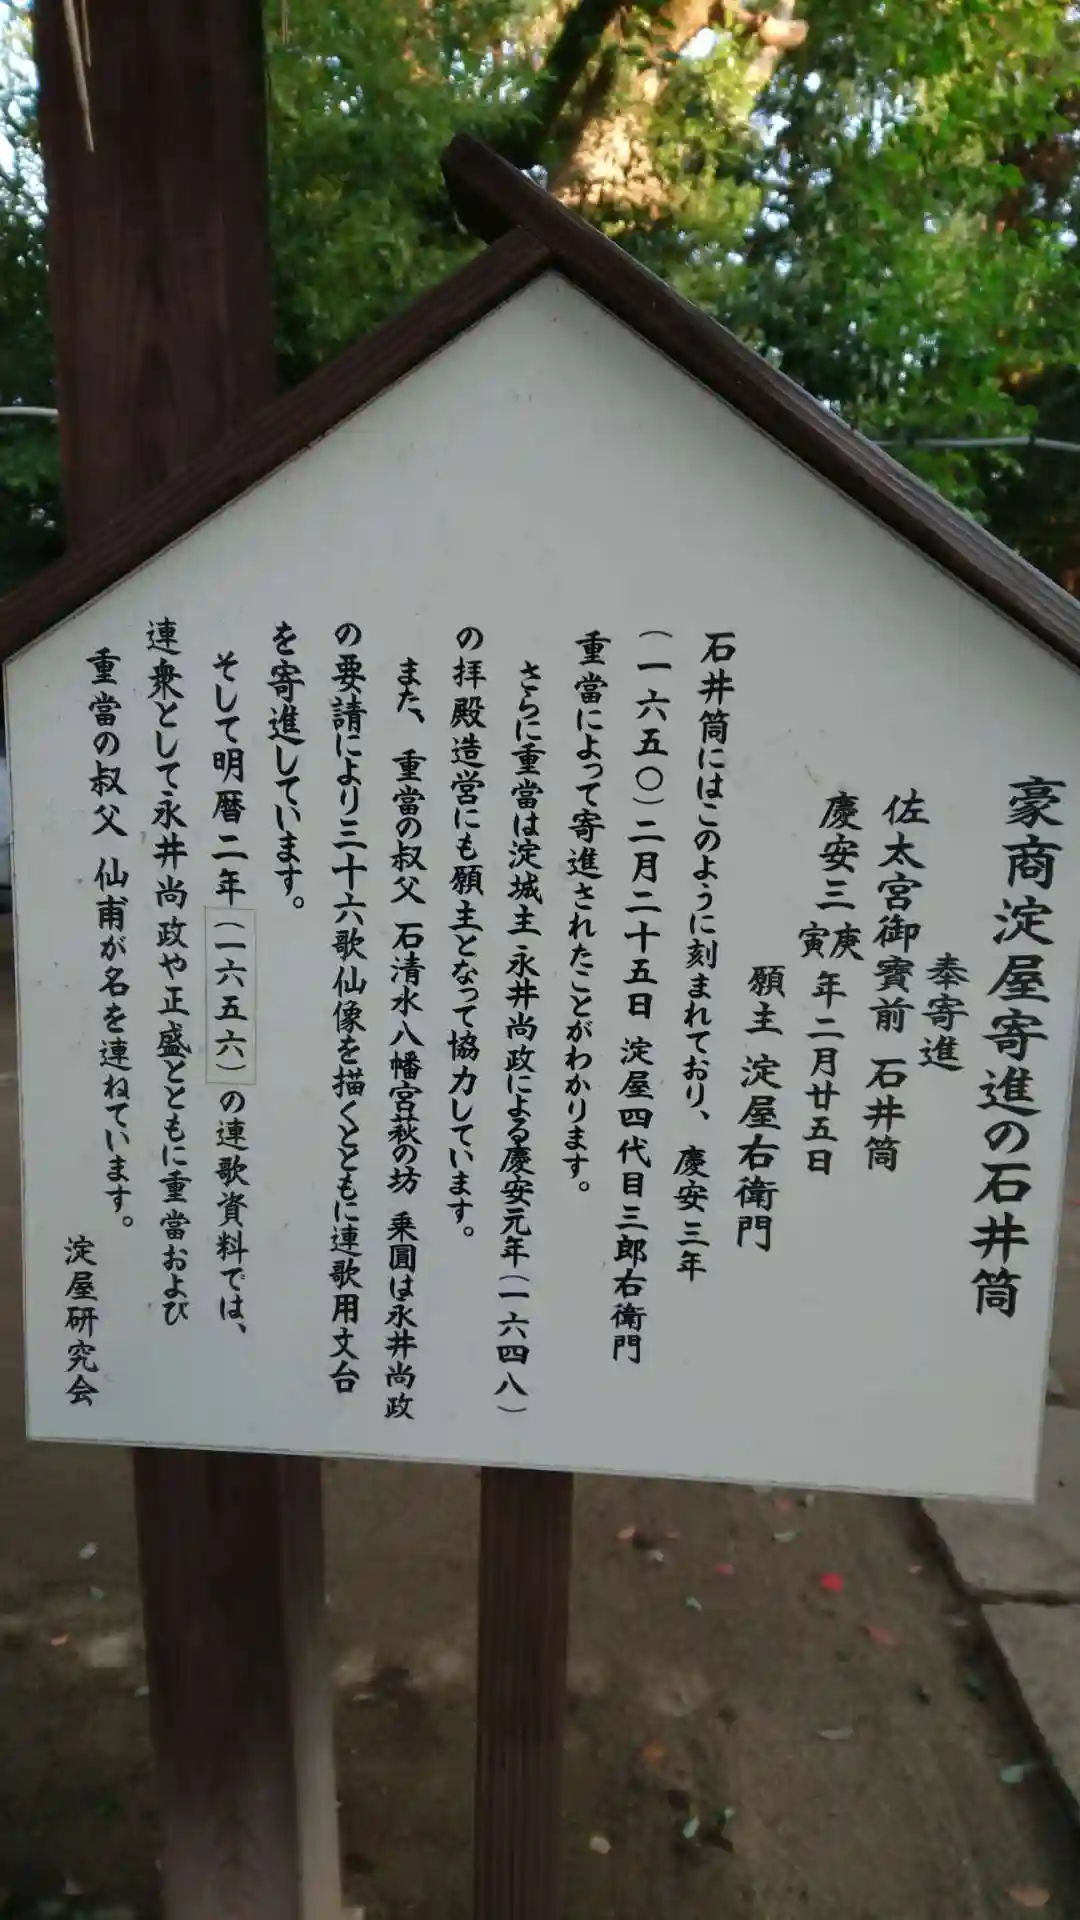 豪商淀屋寄進の石井筒
奉寄進
佐太宮御寳前 石井筒
慶安三庚寅年二月廿五日
願主 淀屋右衛門
石井筒にはこのように刻まれており、慶安三年
(一六五〇)二月二十五日 淀屋四代目三郎右衛門
重當によって寄進されたことがわかります。
さらに重當は淀城主永井尚政による慶安元年(一六四八)
の拝殿造営にも願主となって協力しています。
また、重當の叔父 石清水八幡宮萩の坊 乗圓は永井尚政
の要請により三十六歌仙像を描くとともに連歌用文台
を寄進しています。
そして明暦二年(一六五六)の連歌資料では、
連衆として永井尚政や正盛とともに重當および
重當の叔父 仙甫が名を連ねています。
淀屋研究会